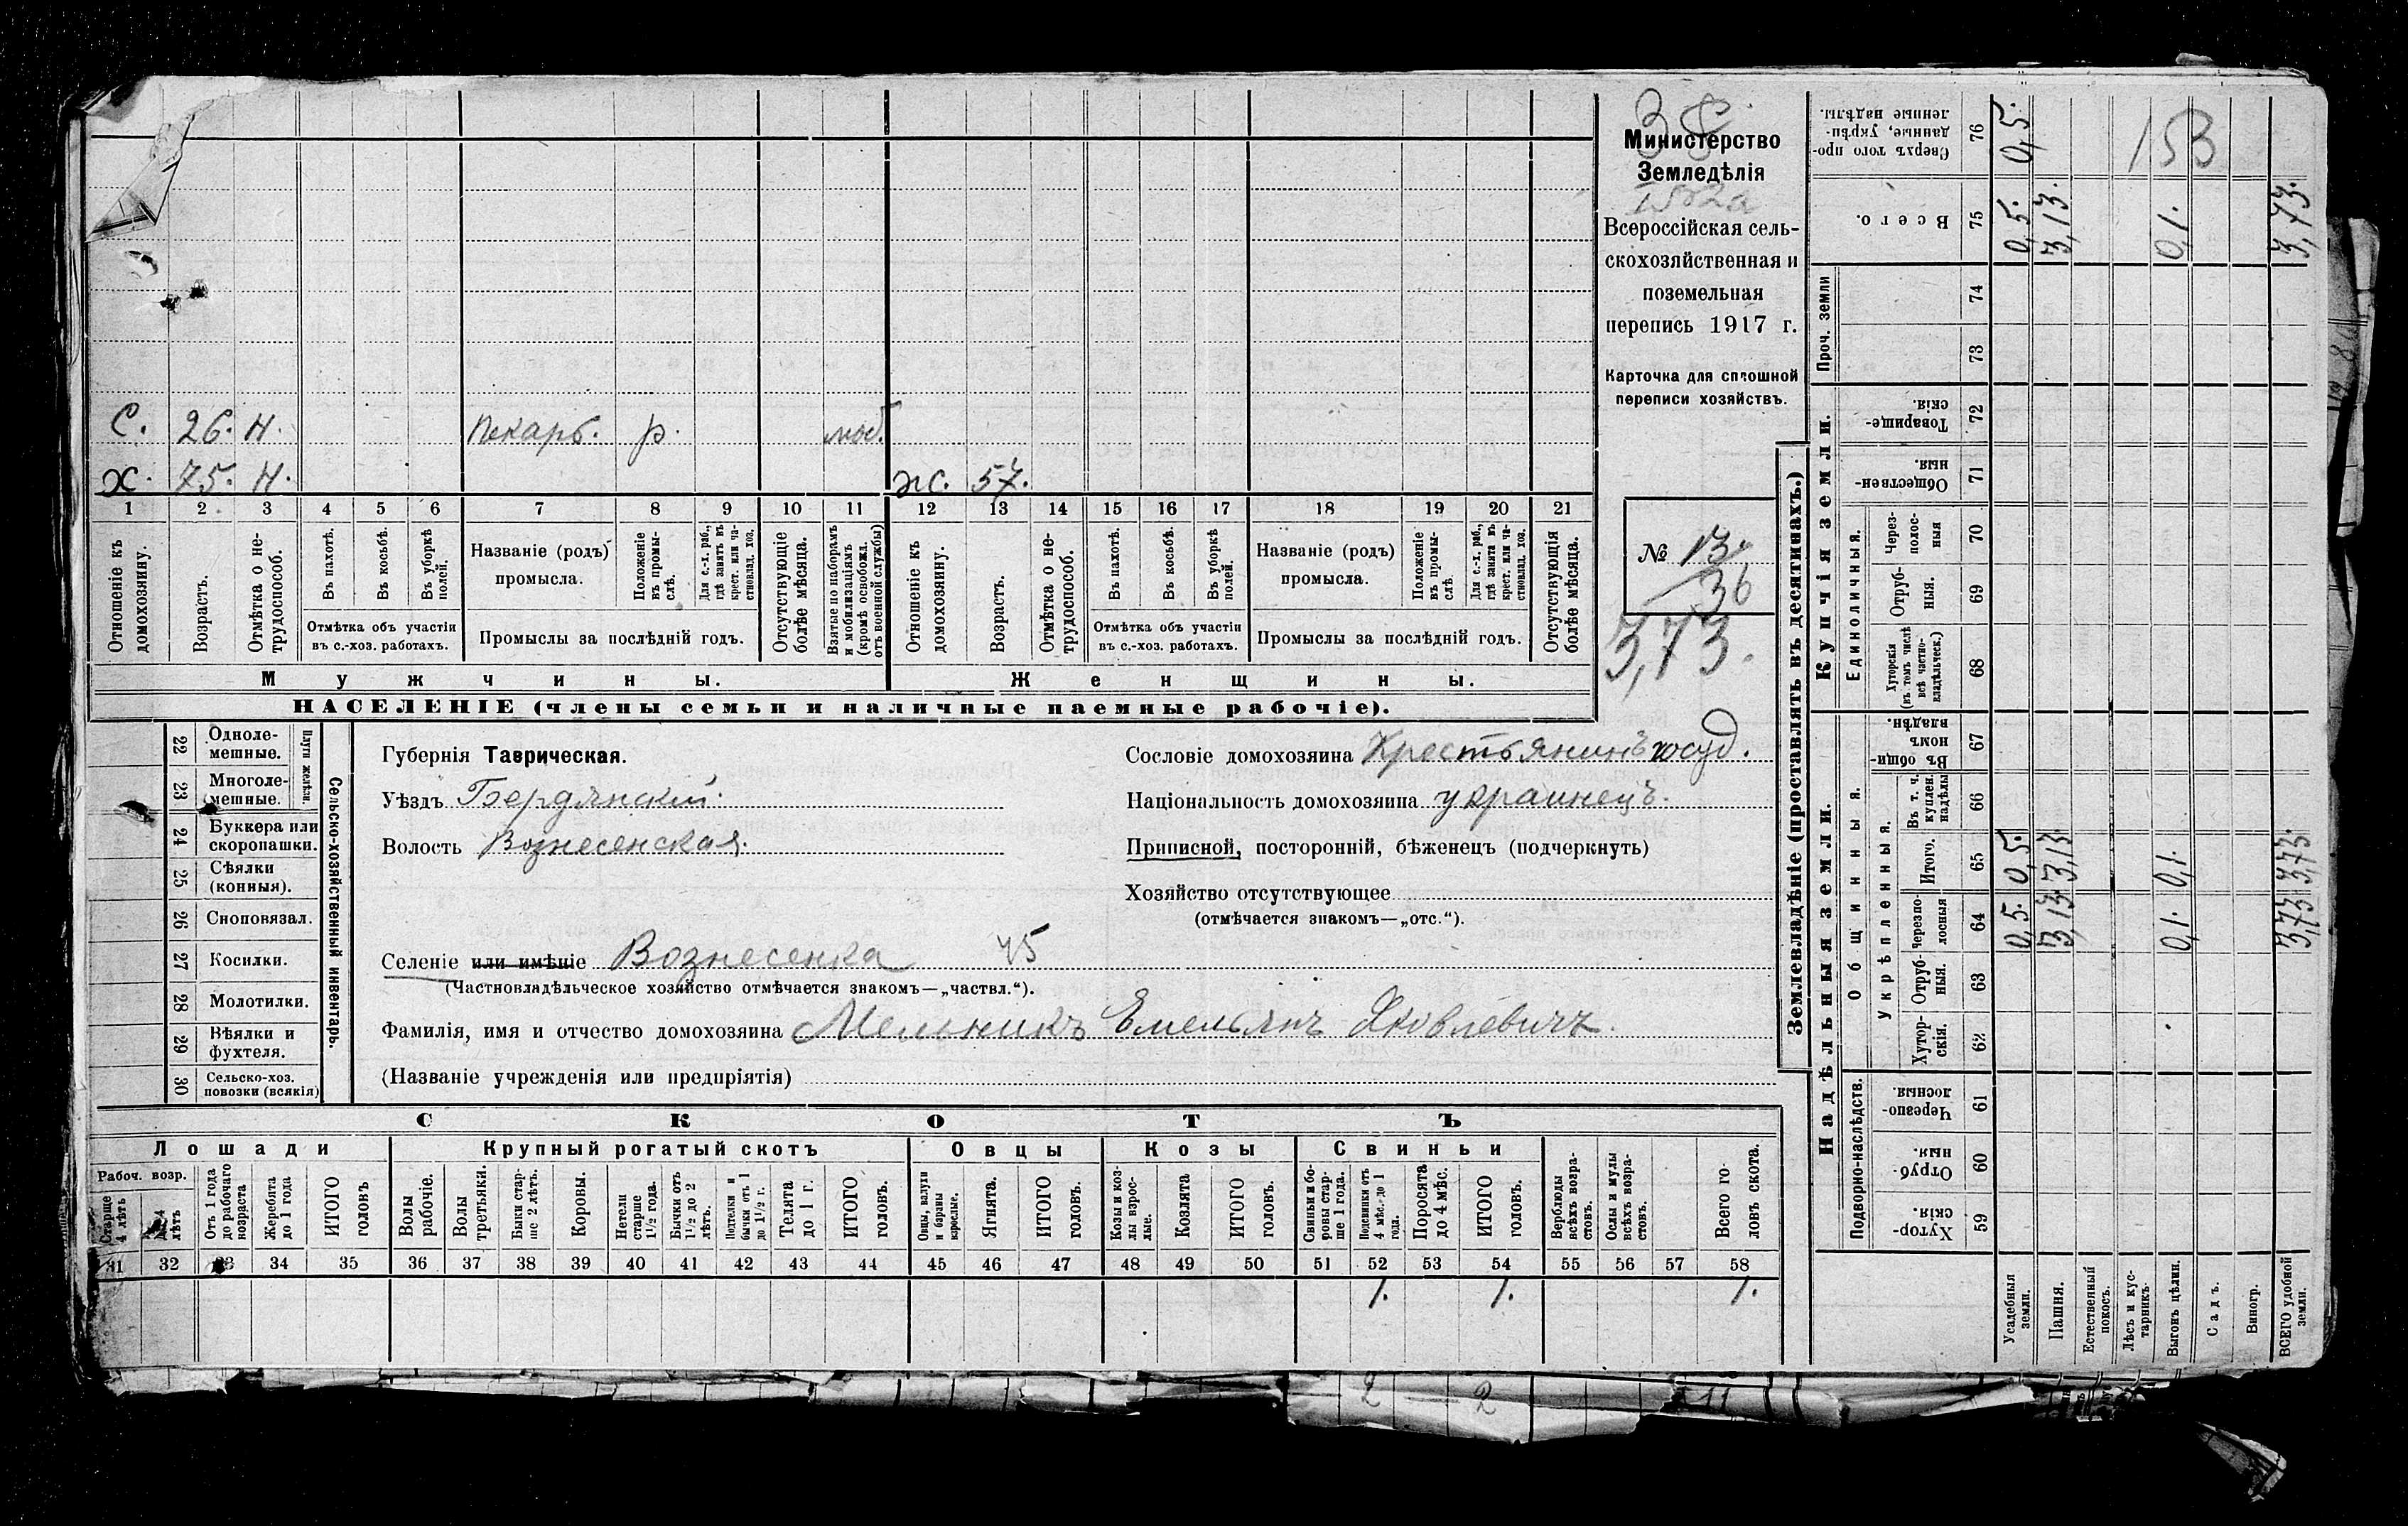 С. 26. Н. пекарь. р. моб.
Х. 75. Н. ж. 57.
1 2 3 4 5 6 7 8 9 10 11 12 13 14 15 16 17 18 19 20 21
Отношеніе къ домохозяину.
Возрастъ.
Отмѣтка о нетрудоспособ.
Въ пахотѣ.
Въ косьбѣ.
Въ уборкѣ полей.
Отмѣтка объ участіи
въ с.-хоз. работахъ.
Названіе (родъ)
промысла.
Положеніе въ промыслѣ.
Для с.-х. раб., гдѣ занятъ въ крест. или частновлад. хоз.
Промыслы за послѣдній годъ.
Отсутствующіе болѣе мѣсяца.
Взятые по наборамъ и мобилизаціямъ (кромѣ освобожд. отъ военной службы)
Отношеніе къ домохозяину.
Возрастъ.
Отмѣтка о нетрудоспособ.
Въ пахотѣ.
Въ косьбѣ.
Въ уборкѣ полей.
Отмѣтка объ участіи
въ с.-хоз. работахъ.
Названіе (родъ)
промысла.
Положеніе въ промыслѣ.
Для с.-х. раб., гдѣ занята въ крест. или частновлад. хоз.
Промыслы за послѣдній годъ.
Отсутствующія болѣе мѣсяца.
Мужчины.
Женщины.
НАСЕЛЕНІЕ (члены семьи и наличные наемные рабочіе).
Министерство
Земледѣлія
Всероссійская сель-
скохозяйственная и
поземельная
перепись 1917 г.
Карточка для сплошной
переписи хозяйствъ.
№ 13.
36
3,73.
22 Однолемешные.
23 Многолемешные.
Плуги желѣзн.
24 Буккера или скоропашки.
25 Сѣялки (конныя).
26 Сноповязал.
27 Косилки.
28 Молотилки.
29 Вѣялки и фухтеля.
30 Сельско-хоз. повозки (всякія)
Сельско-хозяйственный инвентарь.
Губернія Таврическая.
Уѣздъ Бердянскій.
Волость Вознесенская.
Сословіе домохозяина Крестьянинъ госуд.
Національность домохозяина украинецъ.
Приписной, посторонній, бѣженецъ (подчеркнуть)
Хозяйство отсутствующее
(отмѣчается знакомъ—„отс.“).
Селеніе или имѣніе Вознесенка 75
(Частновладѣльческое хозяйство отмѣчается знакомъ—„частвл.“).
Фамилія, имя и отчество домохозяина Мельникъ Емельянъ Яковлевичъ.
(Названіе учрежденія или предпріятія)
СКОТЪ
Лошади Крупный рогатый скотъ Овцы Козы Свиньи
Рабоч. возр.
Старше 4 лѣтъ
4 лѣтъ
Отъ 1 года до рабочаго возраста
Жеребята до 1 года
ИТОГО головъ
Волы рабочіе.
Волы третьяки.
Быки старше 2 лѣтъ.
Коровы.
Нетели старше 1½ года.
Бычки отъ 1½ до 2 лѣтъ.
Подтелки и бычки отъ 1 до 1½ г.
Телята до 1 г.
ИТОГО головъ.
Овцы, валухи и бараны взрослые.
Ягнята.
ИТОГО головъ.
Козы и козлы взрослые.
Козлята
ИТОГО головъ.
Свиньи и боровы старше 1 года.
Подсвинки отъ 4 мѣс. до 1 года.
Поросята до 4 мѣс.
ИТОГО головъ.
Верблюды всѣхъ возрастовъ.
Ослы и мулы всѣхъ возрастовъ.
Всего головъ скота.
31 32 33 34 35 36 37 38 39 40 41 42 43 44 45 46 47 48 49 50 51 52 53 54 55 56 57 58
1. 1. 1.
Землевладѣніе (проставлять въ десятинахъ.)
Купчія земли.
Надѣльныя земли.
Сверхъ того проданные, укрѣпленные надѣлы. 76 0,5. 153
Всего. 75 0,5. 3,13. 0,1. 3,73.
Проч. земли
74
73
Товарищескія. 72
Общественныя. 71
Единоличныя.
Черезполосныя 70
Отрубныя. 69
Хуторскія (въ томъ числѣ всѣ частновладѣльческ.) 68
Общинныя.
Въ общинномъ владѣн. 67
Укрѣпленныя.
Въ т. ч. куплен. надѣлы 66
Итого. 65 0,5. 3,13 0,1. 3,73.
Черезполосныя 64 0,5. 3,13 0,1. 3,73
Отрубныя. 63
Хуторскія. 62
Подворно-наслѣдств.
Черезполосныя. 61
Отрубныя. 60
Хуторскія. 59
Усадебныя земли.
Пашня.
Естественный покосъ.
Лѣсъ и кустарникъ
Выгонъ цѣлин.
Садъ.
Виногр.
ВСЕГО удобной земли.
2 — 2 11